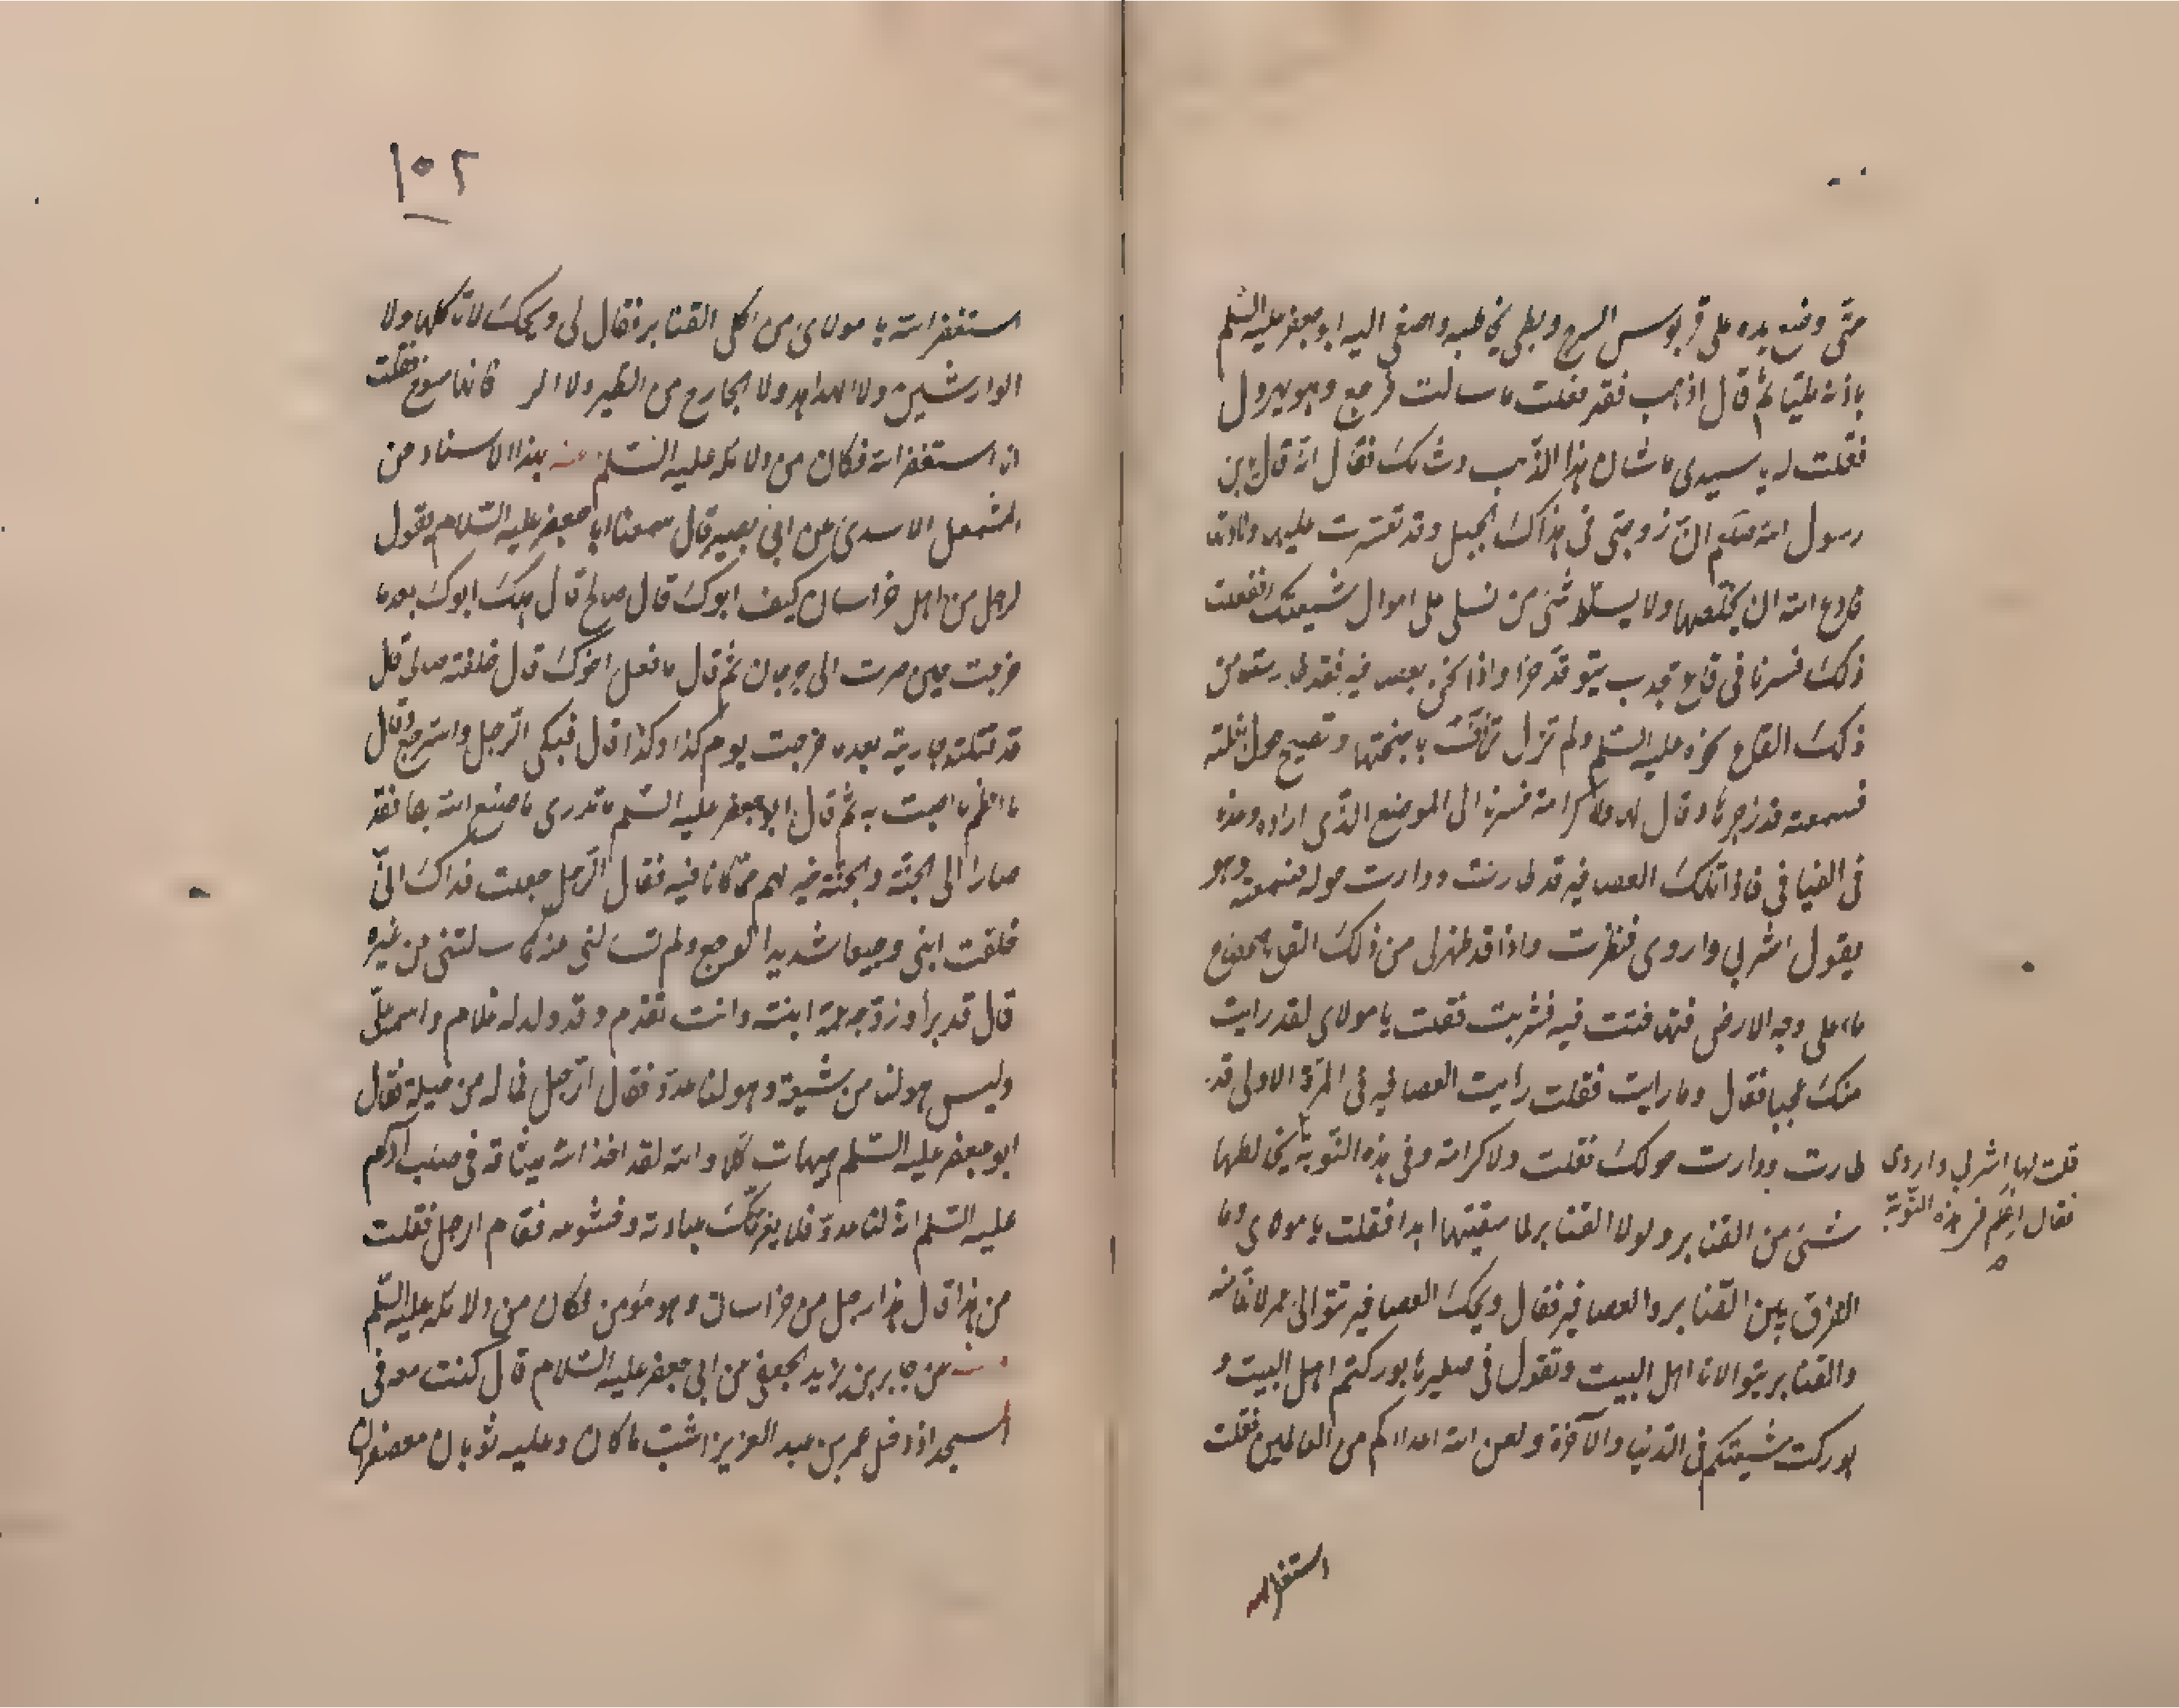 حتى وضع يده على قربوس السرج وبطى يخاطبه واصغى اليه ابو جعفر عليه السلم
باذنه مليّا ثم قال اذهب فقد فعلت ما سالت فرجع وهو يهرول
فقلت له يا سيدى ما شان هذا الذئب وشانك فقال انه قال يا بن
رسول الله صلعم ان زوجتى فى هذاك الجبل وقد تعسرت عليها ولادتها
فادع الله ان يخلصها ولا يسلط شئ من نسلى على اموال شيعتك ففعلت
ذلك فسرنا فى قاع مجدب يتوقد حرا واذا نحن بعصافير فقد طارت من
ذلك القاع نحوه عليه السلم ولم تزل ترفرف باجنحتها وتصيح حول بغلته
فسمعته قد زجرها وقال لها ولا كرامة فسرنا الى الموضع الذى اراده وعدنا
فى الفيافى فاذا تلك العصافير قد طارت ودارت حوله فسمعته وهو
يقول اشربى واروى فنظرت واذا قد ظهر لى من ذلك القاع ضحضاح
ماء على وجه الارض فتهافتت فيه فشربت فقلت يا مولاى لقد رايت
منك عجبا فقال وما رايت فقلت رايت العصافير فى المرة الاولى قد
طارت ودارت حولك فقلت ولا كرامة وفى هذه النوبة يخالطها
قلت لها اشربى واروى
فقال اعلم فى هذه النوبة
شئ من القنابر ولولا القنابر لما سقيتها ابدا فقلت يا مولاى وما
الفرق بين القنابر والعصافير فقال ويحك العصافير توالى عمر لانها منه
والقنابر توالانا اهل البيت وتقول فى صفيرها بوركتم اهل البيت و
بوركت شيعتكم فى الدنيا والآخرة ولعن الله اعداكم من العالمين فقلت
استغفر الله
١٥٢
استغفر الله يا مولاى من اكل القنابر فقال لى ويحك لا تاكلها ولا
الوارشين ولا الهداهد ولا الجارح من الطير ولا الر فانها مسوخ فقلت
انا استغفر الله فكان من دلائله عليه السلم عنه بهذا الاسناد عن
المشمعل الاسدى عن ابى بصير قال سمعنا ابا جعفر عليه السلام يقول
لرجل من اهل خراسان كيف ابوك قال صالح قال هلك ابوك بعد ما
خرجت حين صرت الى جرجان ثم قال ما فعل اخوك قال خلفته صالح قال
قد قتلته جاريته بعد ما خرجت يوم كذا وكذا قال فبكى الرجل واسترجع وقال
ما اعظم ما اصبت به ثم قال ابو جعفر عليه السلم ما تدرى ما صنع الله بهما فقد
صارا الى الجنة والجنة خير لهم مما كانا فيه فقال الرجل جعلت فداك انى
خلفت ابنى وجيعا شديد الوجع ولم تسألنى عنه كما سالتنى عن غيره
قال قد برأ وزوجه عمه ابنته وانت تقدم وقد ولد له غلام واسمه على
وليس هو لنا من شيعة وهو لنا عدو فقال الرجل فما له من حيلة فقال
ابو جعفر عليه السلم هيهات كلا والله لقد اخذ الله ميثاقه فى صلب آدم
عليه السلم انه لنا عدو فلا يغرنك عبادته وخشوعه فقام الرجل فقلت
من هذا قال هذا رجل من خراسان وهو مؤمن فكان من دلائله عليه السلم
عنه عن جابر بن يزيد الجعفى عن ابى جعفر عليه السلام قال كنت معه فى
المسجد اذ دخل عمر بن عبد العزيز اشب ما كان وعليه ثوبان معصفران